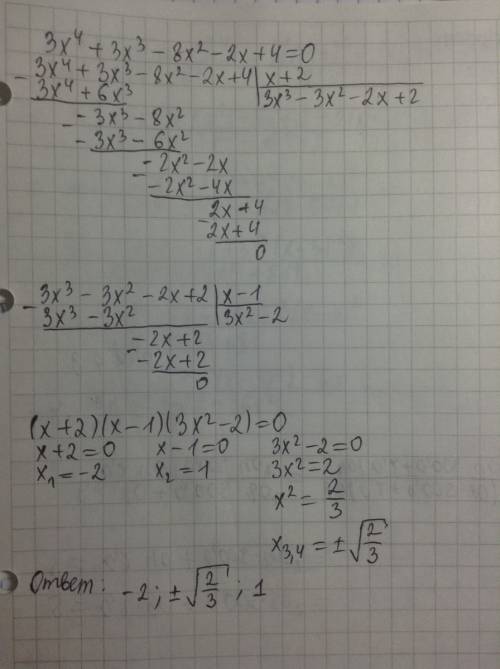 3x⁴ + 3x³ - 8x² - 2x + 4 = 0
- 3x⁴ + 3x³ - 8x² - 2x + 4 | x + 2
3x⁴ + 6x³ 3x³ - 3x² - 2x + 2
- - 3x³ - 8x²
- 3x³ - 6x²
- - 2x² - 2x
- 2x² - 4x
- 2x + 4
2x + 4
0
- 3x³ - 3x² - 2x + 2 | x - 1
3x³ - 3x² 3x² - 2
- - 2x + 2
- 2x + 2
0
(x + 2)(x - 1)(3x² - 2) = 0
x + 2 = 0 x - 1 = 0 3x² - 2 = 0
x₁ = -2 x₂ = 1 3x² = 2
x² = 2/3
x₃,₄ = ± √(2/3)
Ответ: -2; ± √(2/3); 1